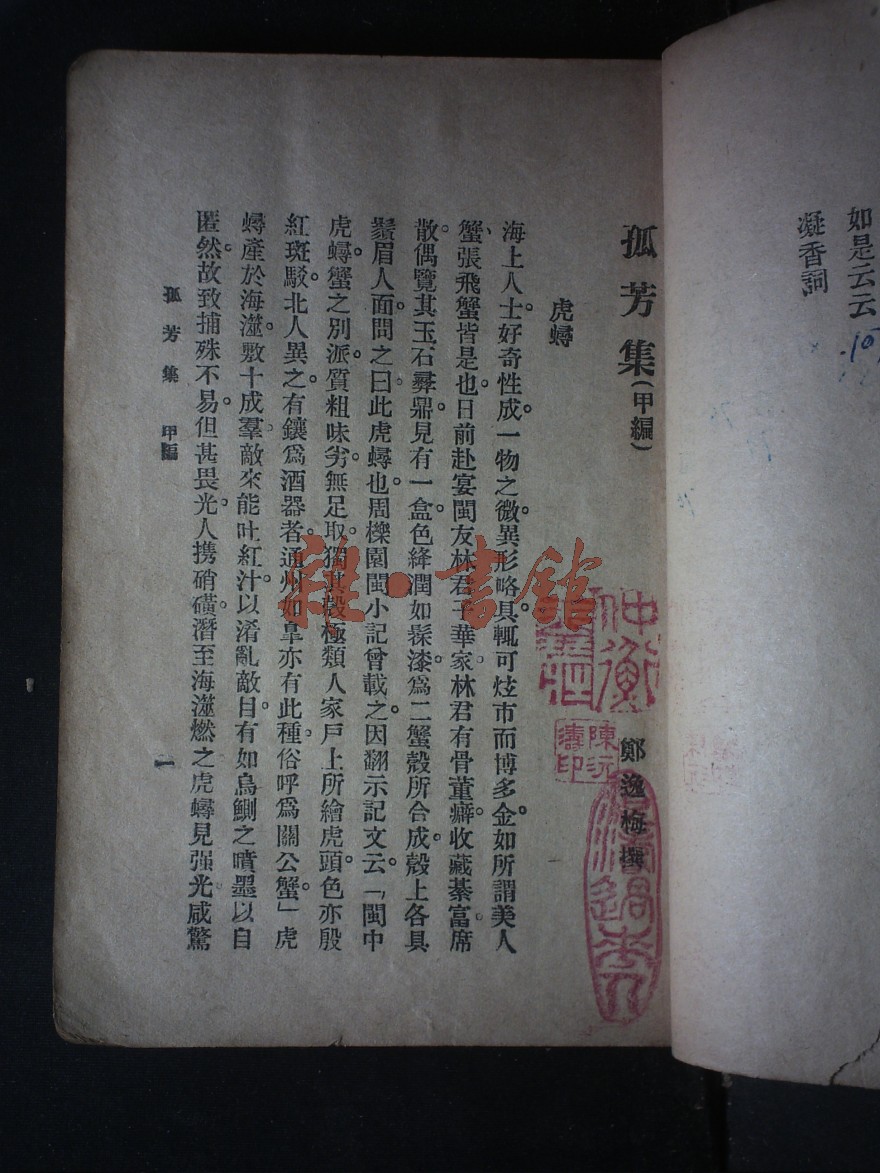 如是云云
10
凝香詞
孤芳集(甲編)
鄭逸梅撰
虎蟳
海上人士好奇性成。一物之微異形略具輒可炫市而博多金。如所謂美人
蟹、張飛蟹皆是也。日前赴宴閩友林君子華家。林君有骨董癖。收藏綦富。席
散。偶覽其玉石彝鼎。見有一盒。色絳潤如髹漆。爲二蟹殼所合成。殼上各具
鬚眉人面。問之曰此虎蟳也。周櫟園閩小記曾載之。因翻示記文云。「閩中
虎蟳。蟹之別派。質粗味劣。無足取。獨其殼極類人家戶上所繪虎頭。色亦殷
紅斑駁。北人異之。有鑲爲酒器者。通州如皋亦有此種。俗呼爲關公蟹。」虎
蟳產於海澨。敷十成羣。敵來。能吐紅汁以淆亂敵目。有如烏鰂之噴墨以自
匿然。故致捕殊不易。但甚畏光。人携硝磺潛至海澨燃之。虎蟳見强光咸驚
孤芳集 甲編
一
陳沅
濤印
雜·書館